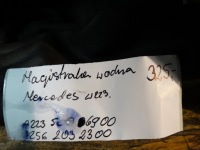 Magistrala wodna 325,-
Mercedes W223.
A223 50 6900
2256 203 2300